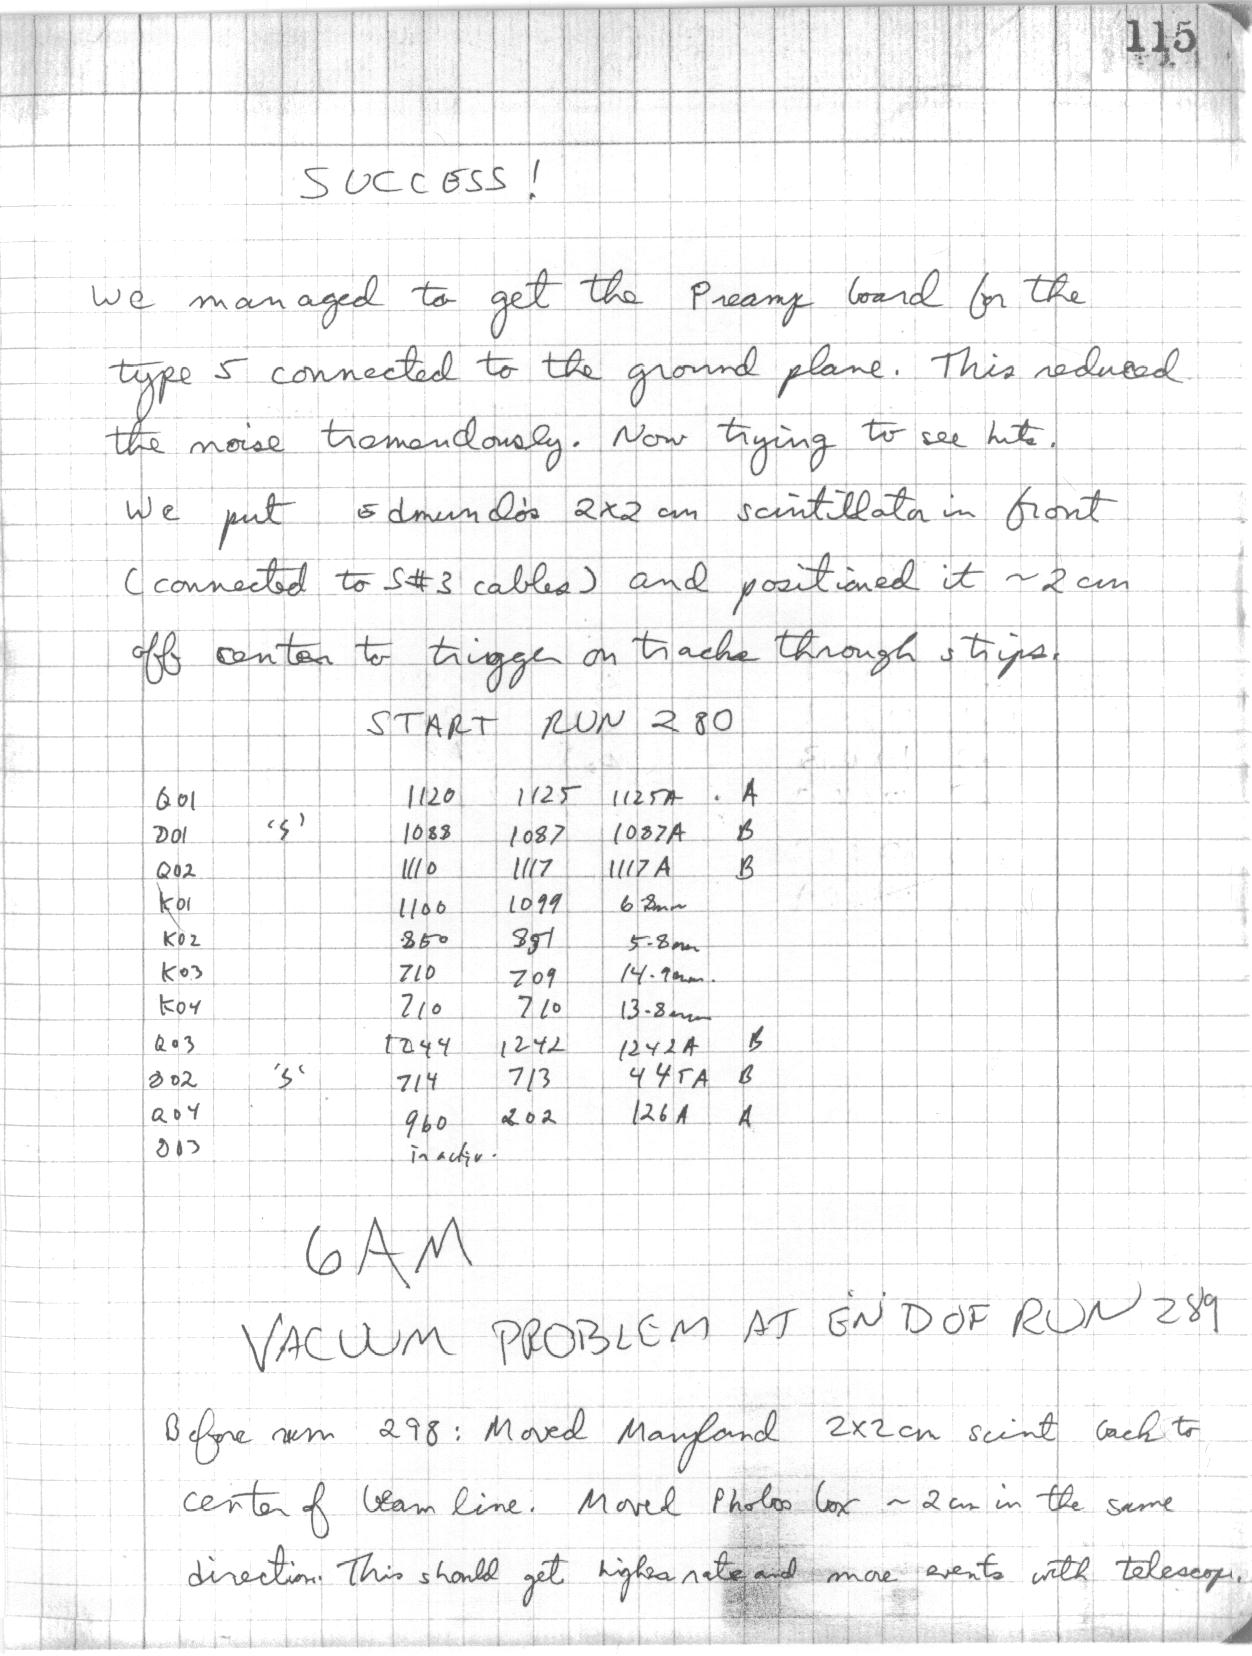 115
SUCCESS!
We managed to get the Preamp board for the
type 5 connected to the ground plane. This reduced
the noise tremendously. Now trying to see hits.
We put Edmundo's 2x2 cm scintillator in front
(connected to S#3 cables) and positioned it ~2 cm
off center to trigger on tracks through strips.
START RUN 280
Q01 1120 1125 1125A . A
D01 'S' 1088 1087 1087A B
Q02 1110 1117 1117A B
K01 1100 1099 6.8mm
K02 850 851 5.8mm
K03 710 709 14.9mm.
K04 710 710 13.8mm
Q03 1244 1242 1242A B
D02 'S' 714 713 445A B
Q04 960 202 126A A
D03 inactiv.
6AM
VACUUM PROBLEM AT END OF RUN 289
Before run 298: Moved Maryland 2x2cm scint back to
center of beam line. Moved Phobos box ~2cm in the same
direction. This should get higher rate and more events with telescope.